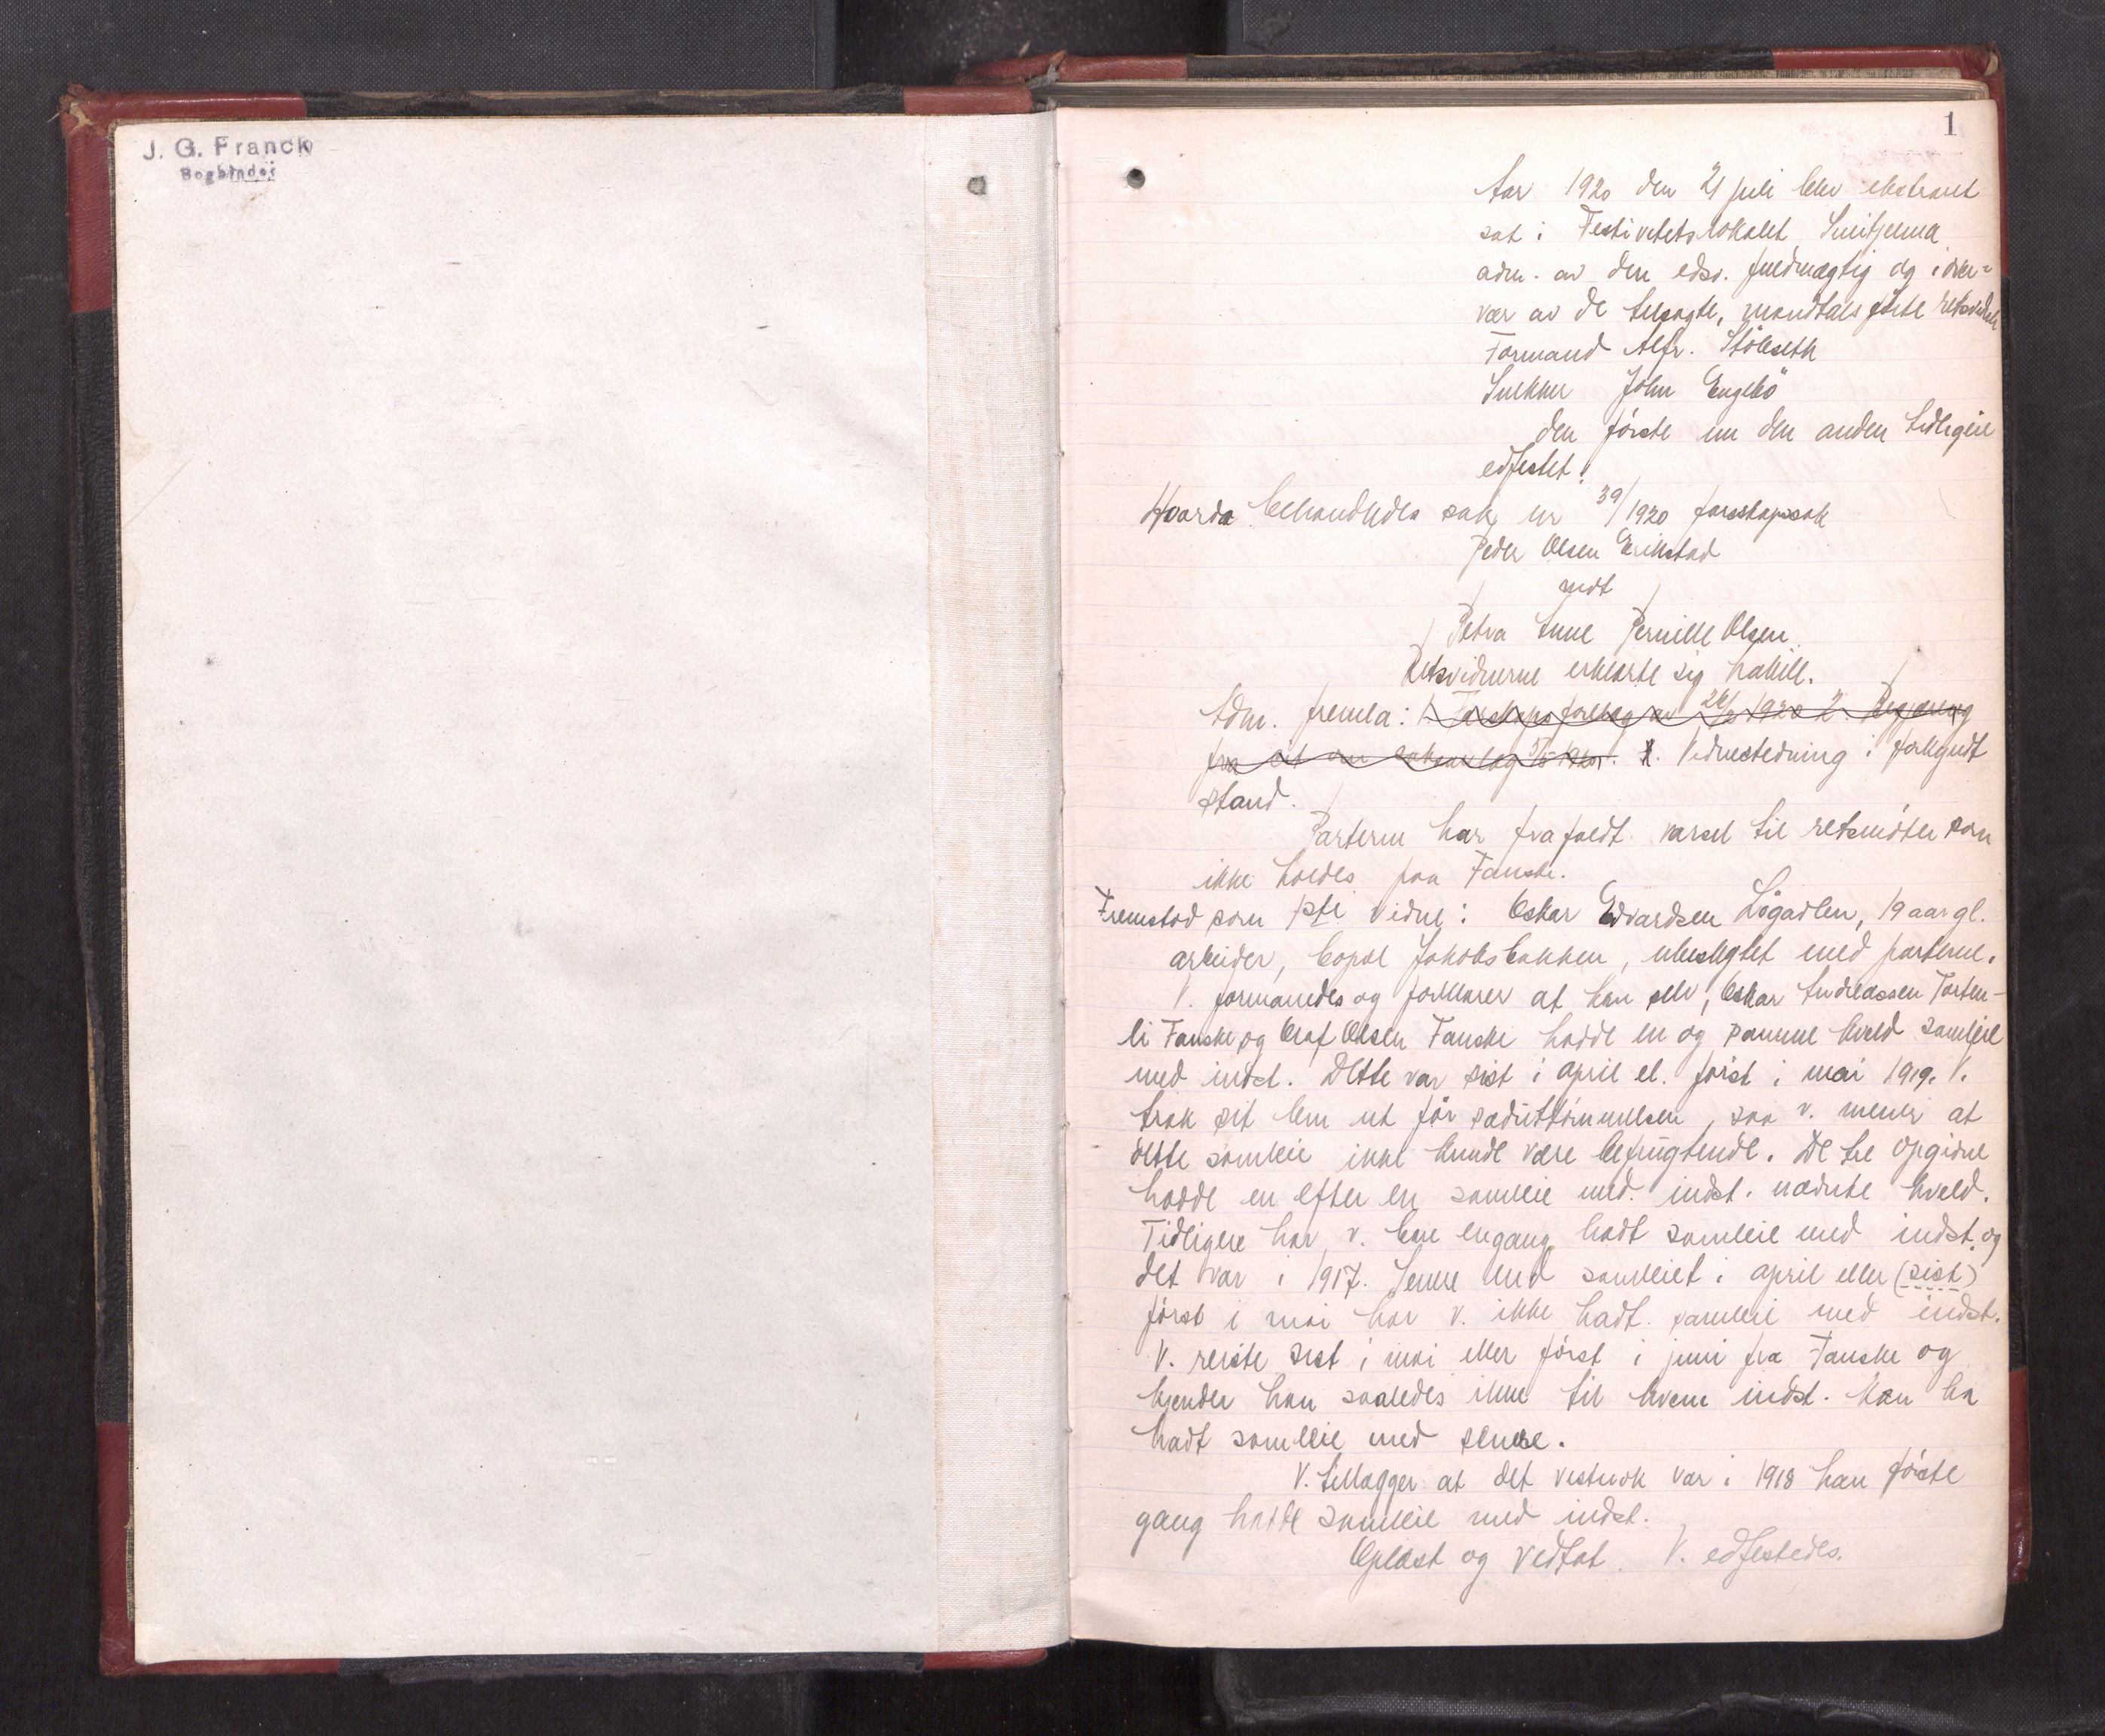 J. G. Franck
Bogbinder
1
Aar 1920 den 21 juli blev ekstraret
sat i Festivitetslokalet Sulitjelma
adm. av den edsv. fuldmægtig og i over=
vær av de tilsagte, mandtalsførte retsvidner
Formand Alfr. Stølseth
Snekker John Engebö
den første nu den anden tidligere
edfestet!
Hvorda behandledes sak nr 39/1920 farskapssak
Peder Olsen Erikstad
mot
Petra Anne Pernille Olsen.
Retsvidnerne erklærte sig habill.
Adm. fremla: 1. Farskapsforelæg av 26/2 1920 2. Begjæring
fra cit om saksanlæg 5/5 1920. 1. Vidnestevning i forkyndt
stand.
Parterne har frafaldt varsel til retsmøter som
ikke holdes paa Fauske.
Fremstod som 1ste vidne: Oskar Edvardsen Løgavlen, 19 aar gl.
arbeider, bopæl Jakobsbakken, ubeslegtet med parterne.
V. formanedes og forklarer at han selv, Oskar Andreassen Torten-
li Fauske og Olaf Olsen Fauske hadde en og samme kveld samleie
med indst. Dette var sist i april el. først i mai 1919. V.
trak sit lem ut før sæduttømmelsen, saa v. mener at
dette samleie ikke kunde være befrugtende. De tre opgivne
hadde en efter en samleie med indst. nævnte kveld.
Tidligere har v. bare engang hadt samleie med indst. og
det var i 1917. Senere end samleiet i april eller (sist)
først i mai har v. ikke hadt samleie med indst.
V. reiste sist i mai eller først i juni fra Fauske og
kjender han saaledes ikke til hvem indst. kan ha
hadt samleie med senere.
V. tillægger at det vistnok var i 1918 han første
gang hadde samleie med indst.
Oplæst og vedtat. V. edfestedes.